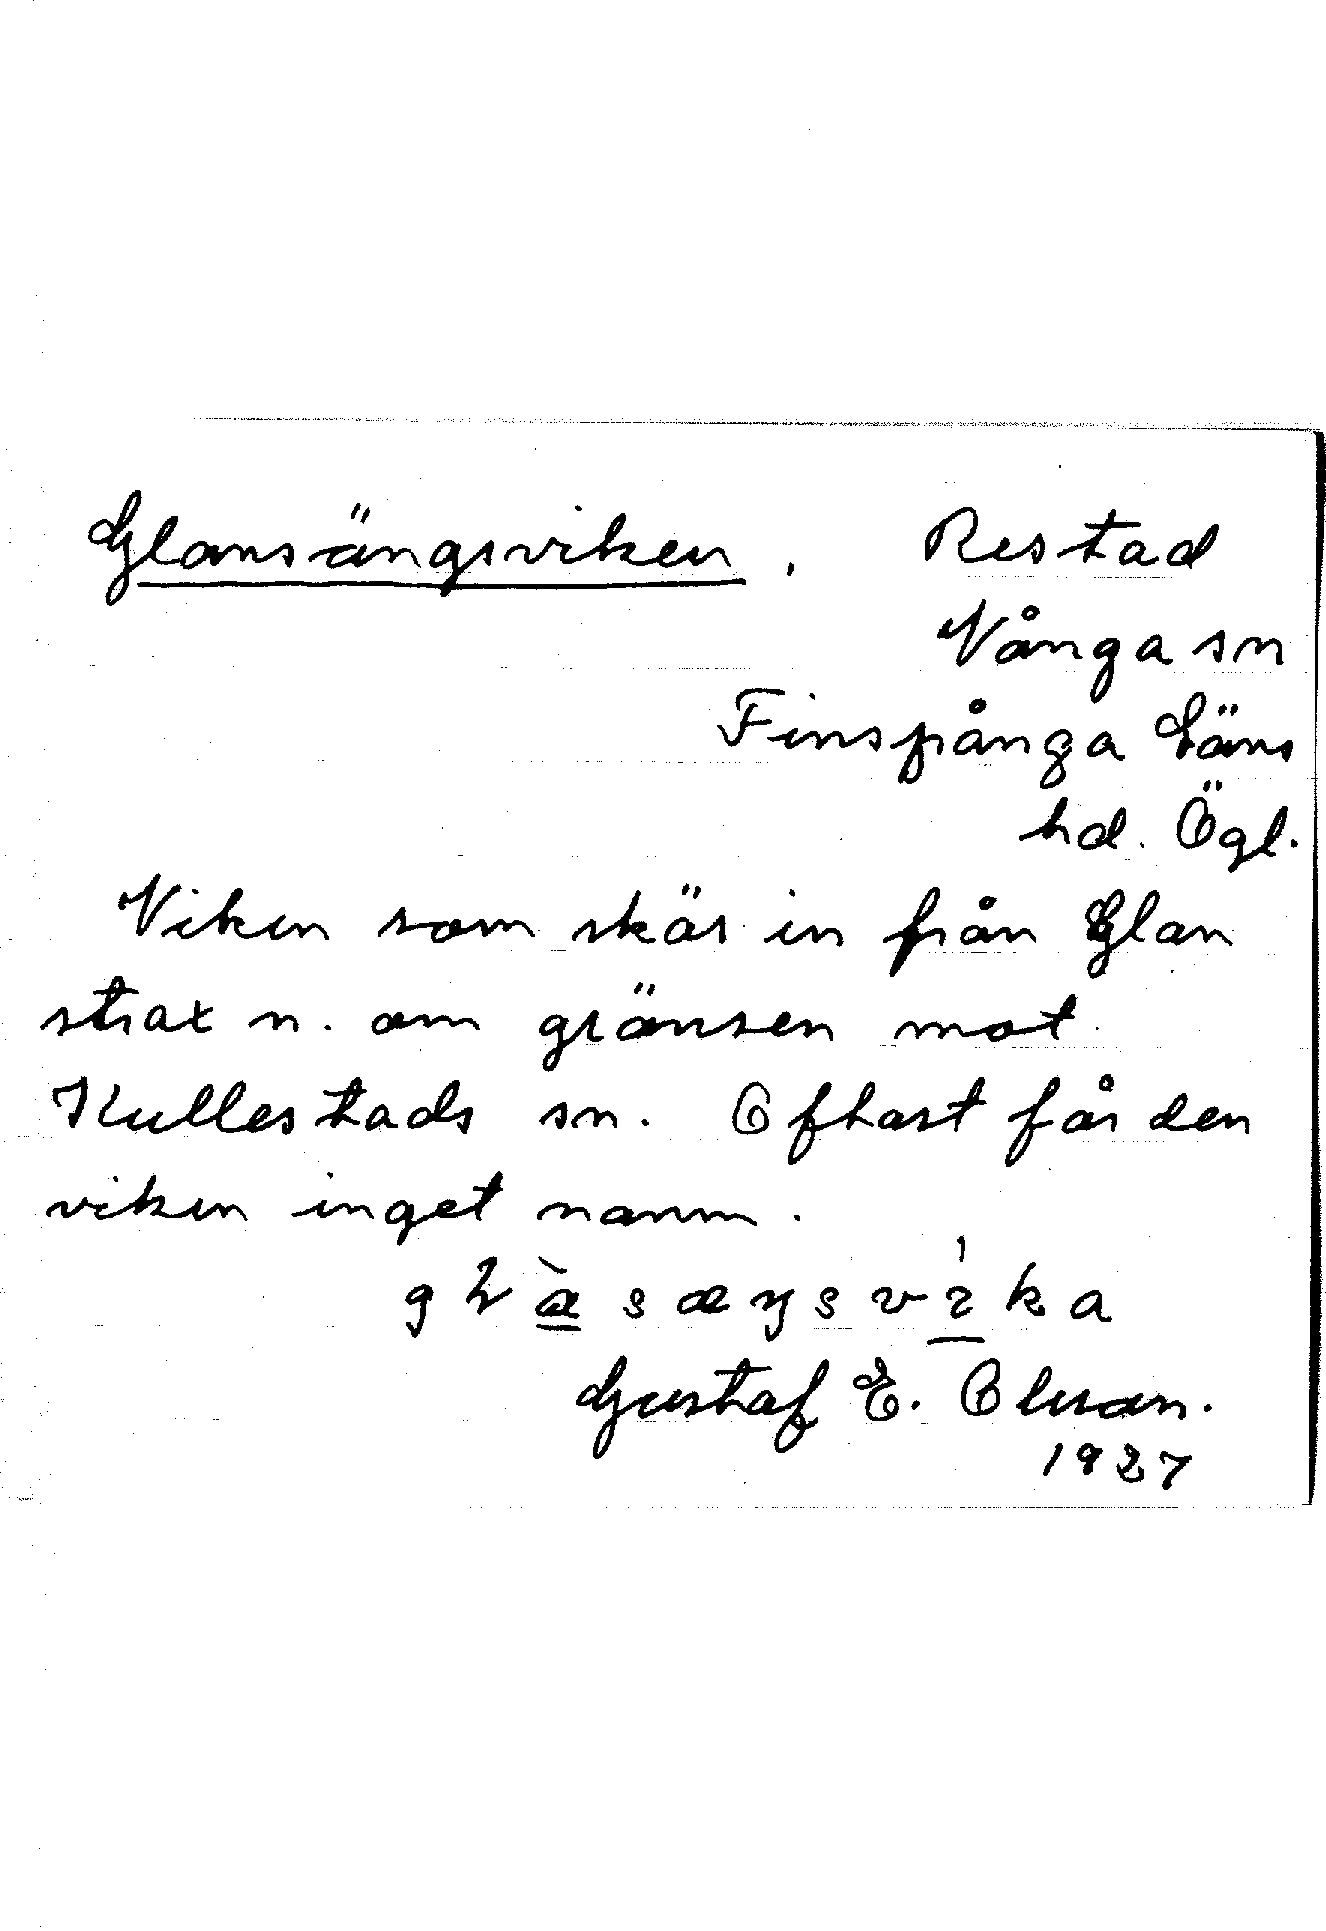 Glansängsviken, Restad
Vånga sn
Finspånga Läns
hd. Ögl.
Viken som skär in från Glan
strax n. om gränsen mot
Kullestads sn. Oftast får den
viken inget namn.
Gustaf E. Olsson.
1927